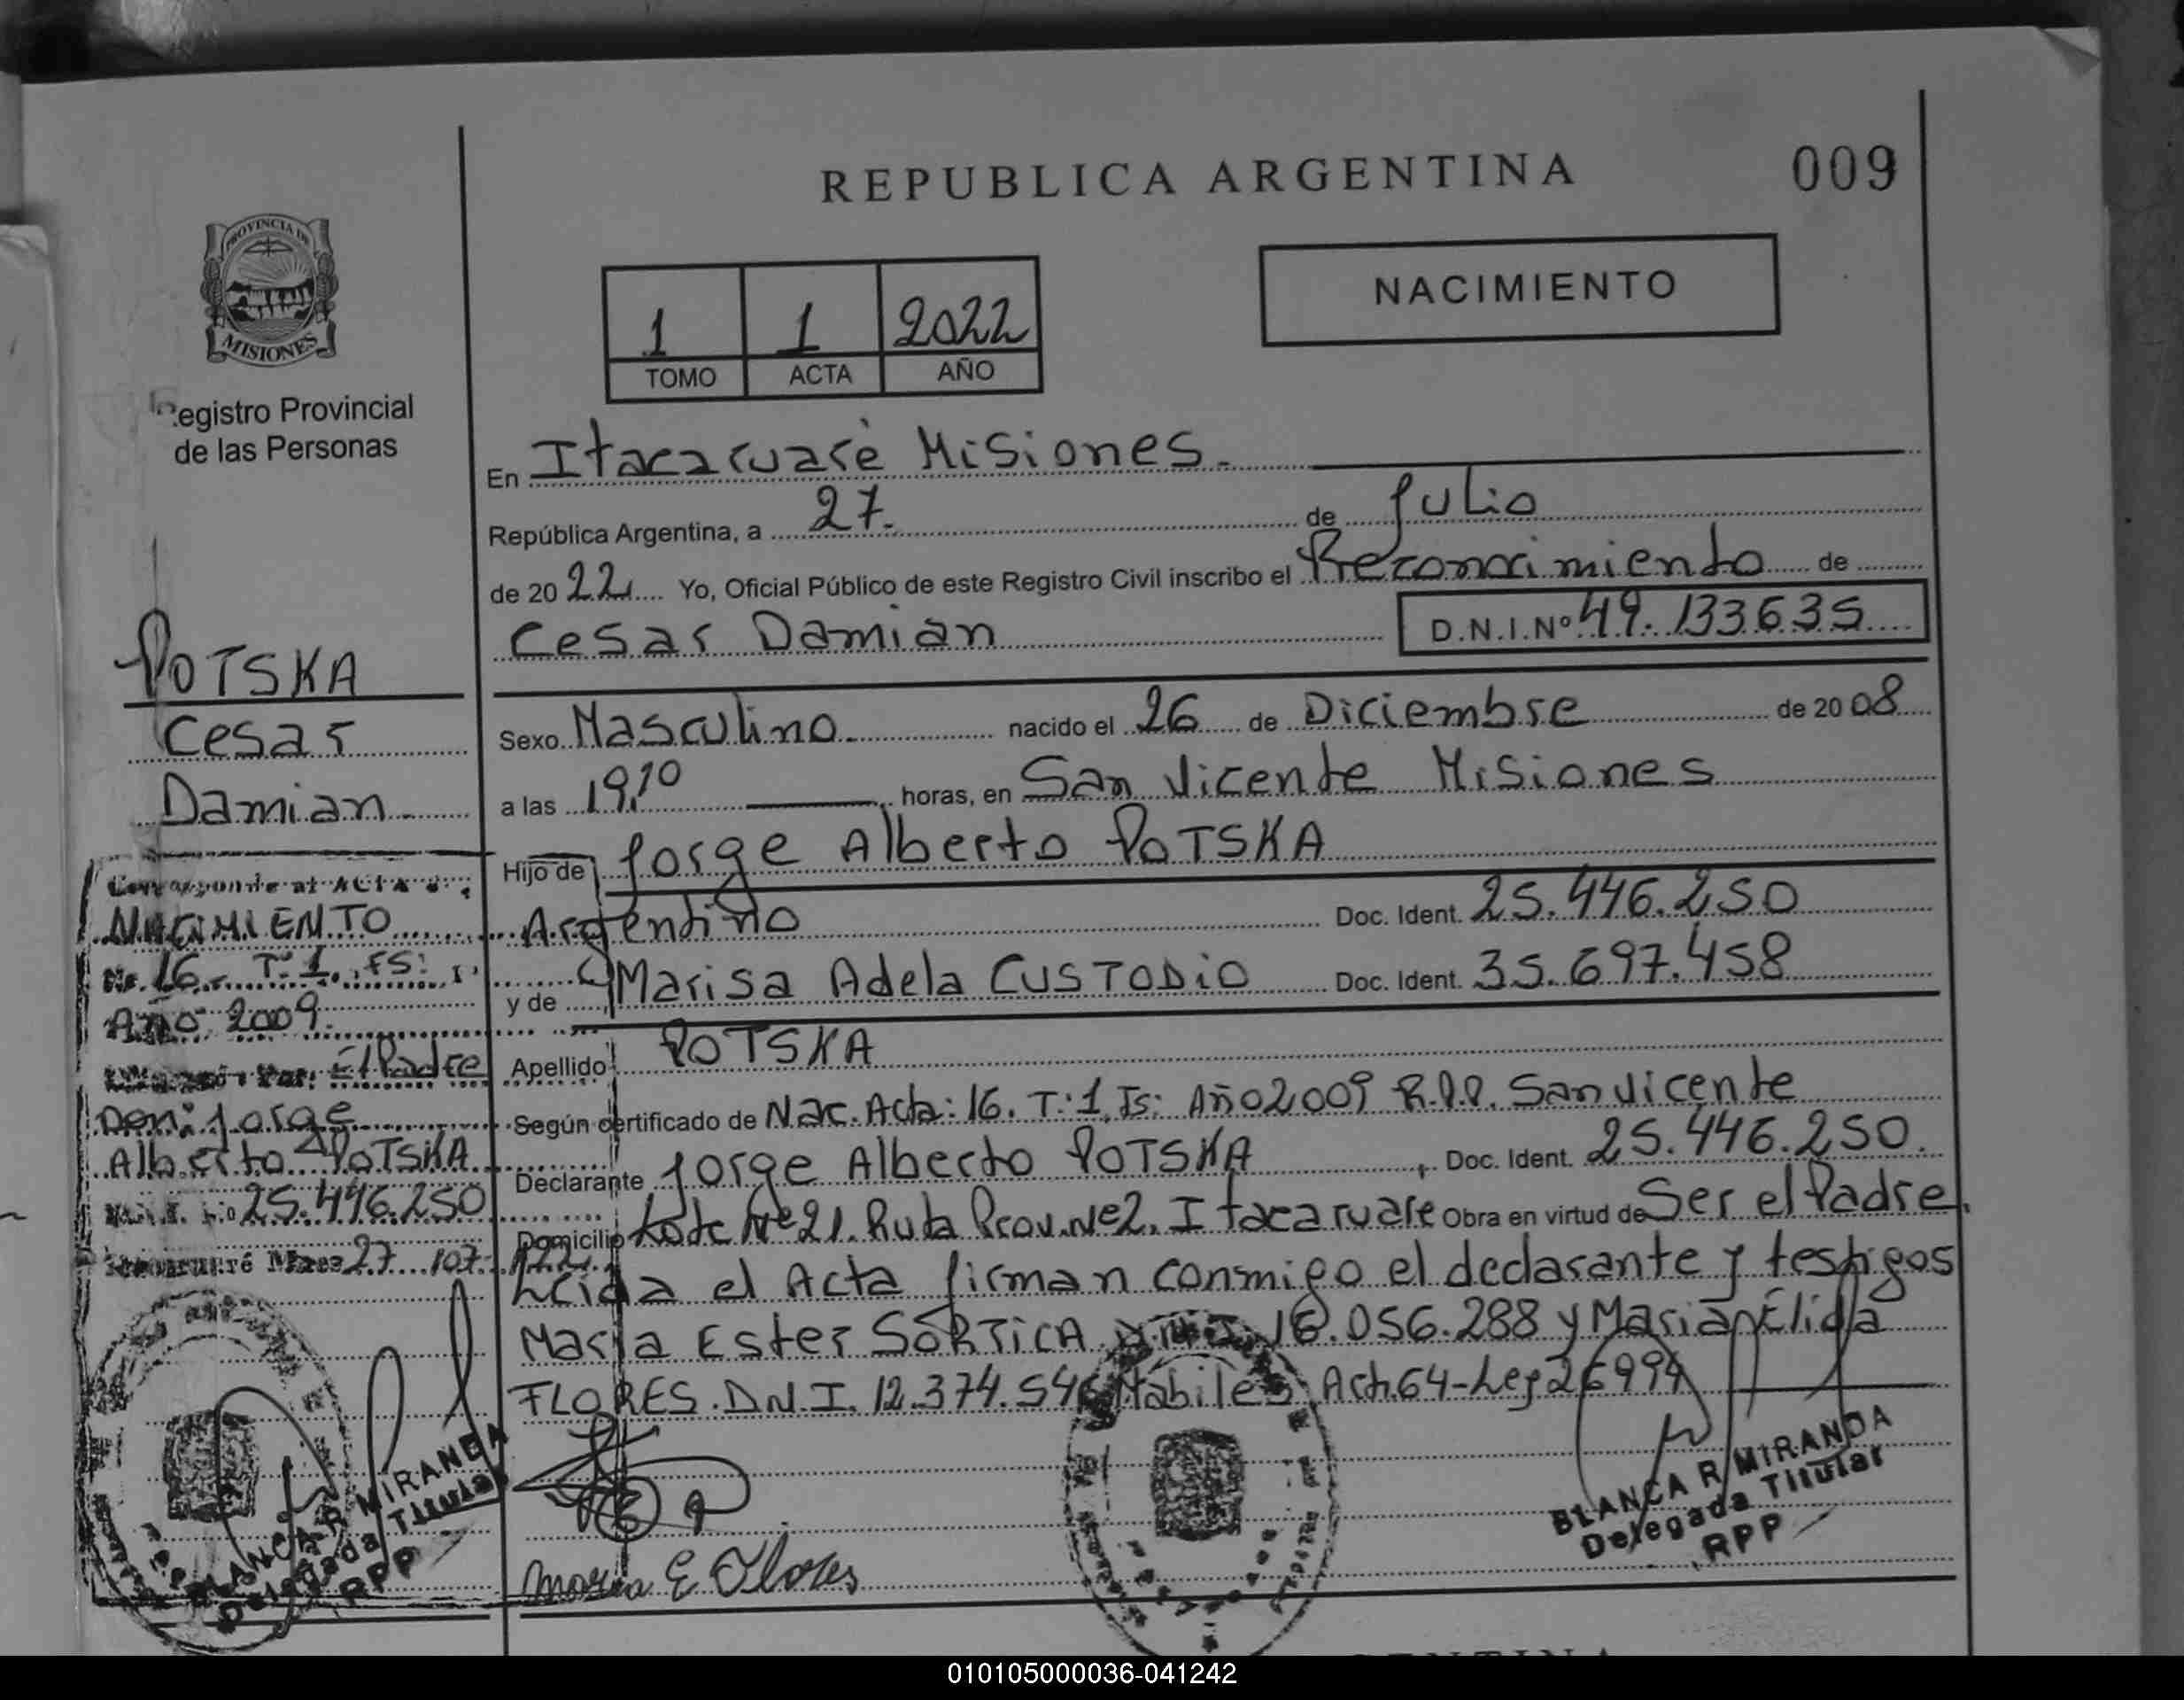 REPUBLICA ARGENTINA
009
PROVINCIA DE
MISIONES
Registro Provincial
de las Personas
1 1 2022
TOMO ACTA AÑO
NACIMIENTO
En Itacaruaré Misiones.
República Argentina, a 27. de Julio
de 2022 Yo, Oficial Público de este Registro Civil inscribo el Reconocimiento de
Cesar Damian D.N.I.Nº 49.133.635
POTSKA
Cesar
Damian
Sexo Masculino nacido el 26 de Diciembre de 2008
a las 19,10 horas, en San Vicente Misiones
Hijo de Jorge Alberto POTSKA
Argentino Doc. Ident. 25.446.250
y de Marisa Adela CUSTODIO Doc. Ident. 35.697.458
Apellido POTSKA
Según certificado de Nac. Acta: 16. T:1, Fs: Año 2009 R.P.P. San Vicente
Declarante Jorge Alberto POTSKA, Doc. Ident. 25.446.250.
Domicilio Lote Nº 21. Ruta Prov. Nº 2. Itacaruare Obra en virtud de Ser el Padre.
Leida el Acta firman conmigo el declarante y testigos
Maria Ester SORTICA D.N.I. 16.056.288 y Maria Elida
FLORES. D.N.I. 12.374.546 Habiles Art. 64-Ley 26994
Corresponde al ACTA
NACIMIENTO
Nº 16. T: 1. FS:
Año 2009.
Por: El Padre
Don: Jorge
Alberto POTSKA
25.446.250
27 107 22
BLANCA R MIRANDA
Delegada Titular
RPP
Maria E Flores
BLANCA R MIRANDA
Delegada Titular
RPP
010105000036-041242